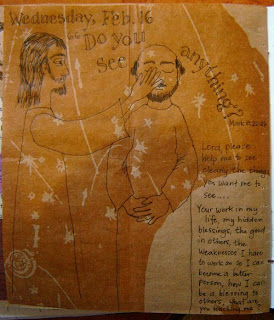 Wednesday, Feb. 16
"Do you
see
anything?"
Mark 8:22-26
Lord, please
help me to see
clearly the things
You want me to
see....
Your work in my
life, my hidden
blessings, the good
in others, the
weaknesses I have
to work on so I can
become a better
person, how I can
be a blessing to
others, what are
you teaching me